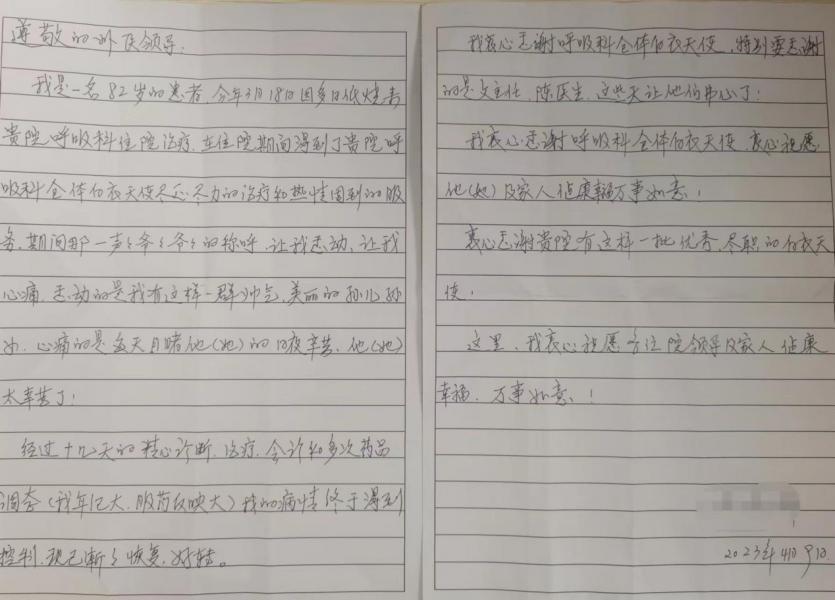 尊敬的外医领导:
我是一名82岁的患者,今年3月18日因多日低烧去
贵院呼吸科住院治疗,在住院期间得到了贵院呼
吸科全体白衣天使尽心尽力的治疗和热情周到的服
务,期间那一声々爷々爷々的称呼,让我感动,让我
心痛,感动的是我有这样一群帅气,美丽的孙儿孙
女,心痛的是每天目睹他(她)的日夜辛苦,他(她)
太辛苦了!
经过十几天的精心诊断,治疗,会诊和多次药品
调整(我年纪大,服药反映大)我的病情终于得到
控制,现已渐々恢复,好转。
我衷心感谢呼吸科全体白衣天使,特别要感谢
的是文主任,陈医生,这些天让他们操心了!
我衷心感谢呼吸科全体白衣天使,衷心祝愿
他(她)及家人健康幸福万事如意!
衷心感谢贵院有这样一批优秀,尽职的白衣天
使!
这里,我衷心祝愿各位院领导及家人健康
幸福,万事如意!!
2023年4月9日